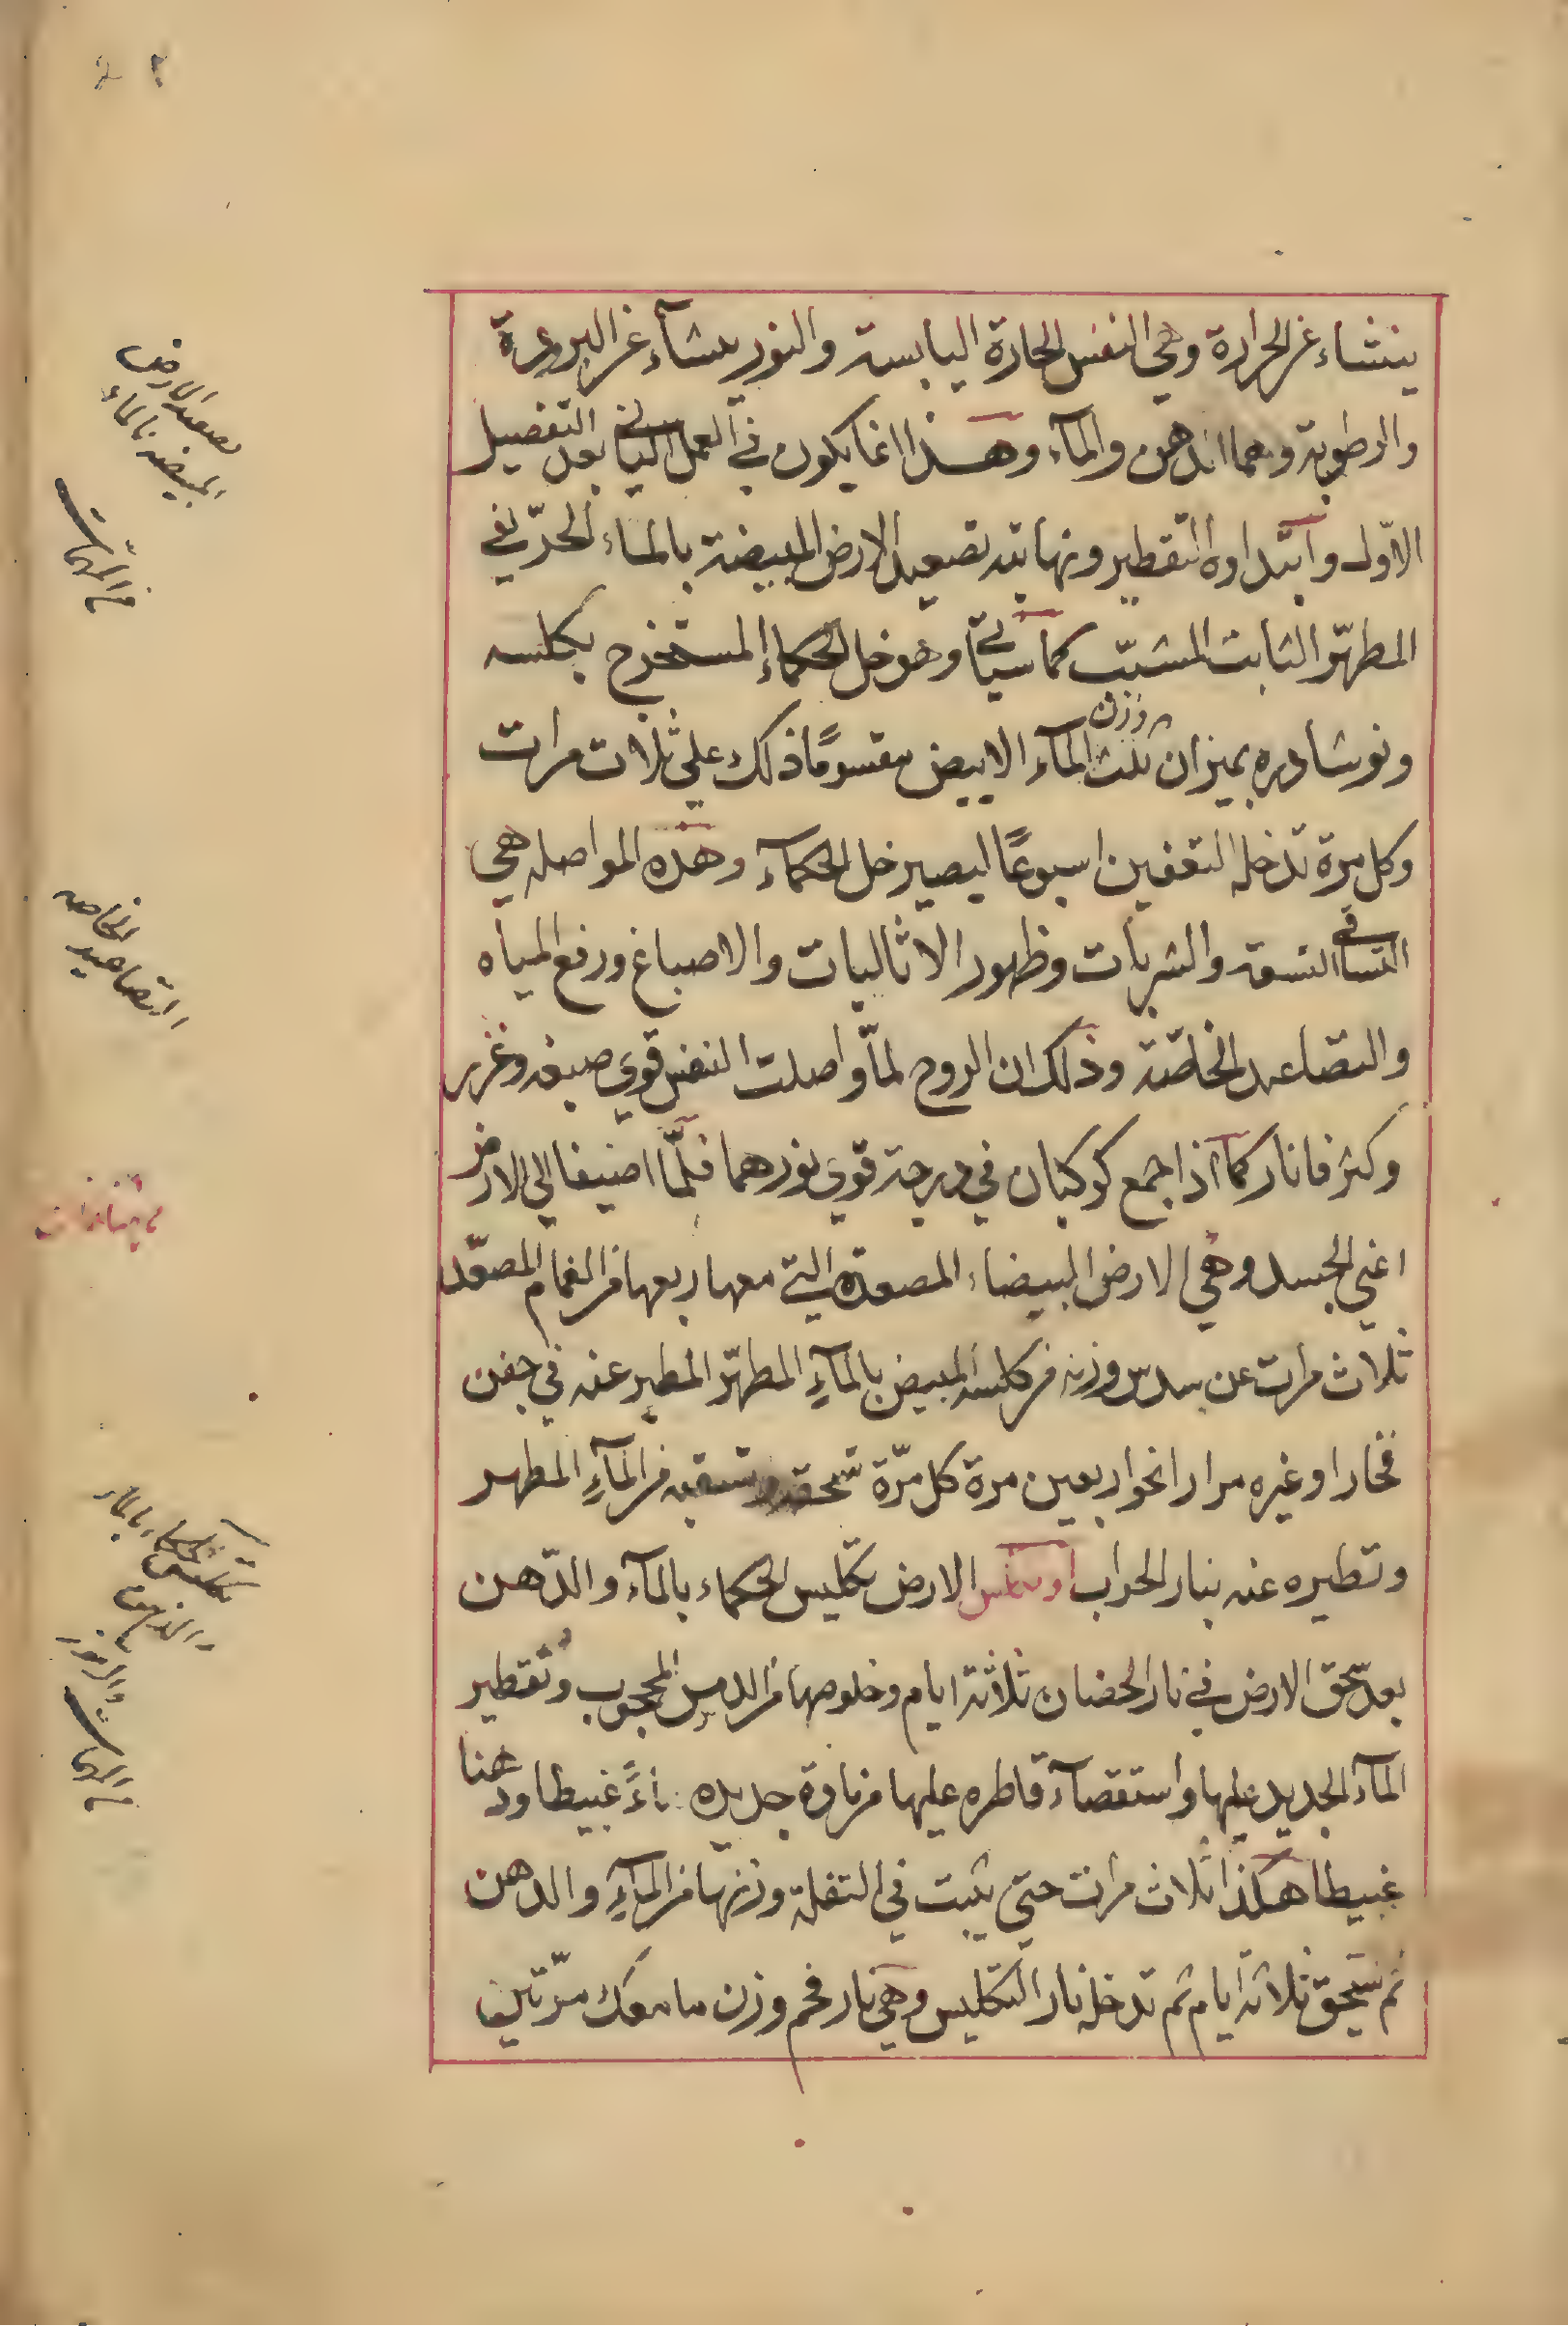 ينشاء عن الحرارة وهي النفس الحارة اليابسة والنور ينشآء عن البرودة
والرطوبة وهما الدهن والمآء وهذا انما يكون في العمل الثاني بعد التفصيل
الاوّل وابتداوه التقطير ونهايته تصعيد الارض المبيضة بالماء الحرّيف
المطهّر الثابت المشبّب كما سياتي وهو خل الحكماء المستخرج بكلسه
ونوشادره بميزان ثلث وزن المآء الابيض مقسومًا ذلك على ثلاث مرات
وكل مرة تدخله التعفين اسبوعًا ليصير خل الحكمآء وهذه المواصله هي
التساقي التسعة والشربات وظهور الاثاليات والاصباغ ورفع المياه
والتصاعيد الخاصّة وذلك ان الروح لمّا واصلت النفس قوي صبغه وغزر
وكثر فانار كما اذا جمع كوكبان في درجة قوي نورهما فلمّا اضيفا الي الارض
اعني الجسد وهي الارض البيضاء المصعدة التي معها ربعها من الغمام المصعّد
ثلاث مرات عن سدس وزنه من كلسه المبيض بالمآء المطهّر المطير عنه في جفن
فخار او غيره مرارا نحو اربعين مرة كل مرّة تسحقه وتسقيه من المآء المطهر
وتطيره عنه بنار الحراب او تكلس الارض بكليس الحكماء بالمآء والدّهن
بعد سحق الارض في نار الحضان ثلاثة ايام وخلوصها من الدمس المحجوب وتقطير
المآء الجديد عليها واستقصآء قاطره عليها من مادة جديده مآءً غبيطا ودهنا
غبيطا هكذا ثلاث مرات حتى يثبت في الثفلة وزنها من المآء والدهن
ثم تسحق ثلاثة ايام ثم تدخله نار التكليس وهي نار فحم وزن ما معك مرّتين
تصعيد الارض
المبيضه بالماء
التصاعيد الخاصه